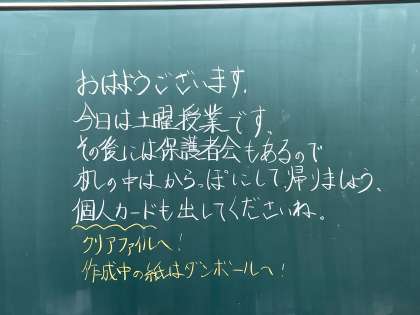 おはようございます。
今日は土曜授業です、
その後には保護者会もあるので
机の中はからっぽにして帰りましょう、
個人カードも出してくださいね。
クリアファイルへ!
作成中の紙はダンボールへ!